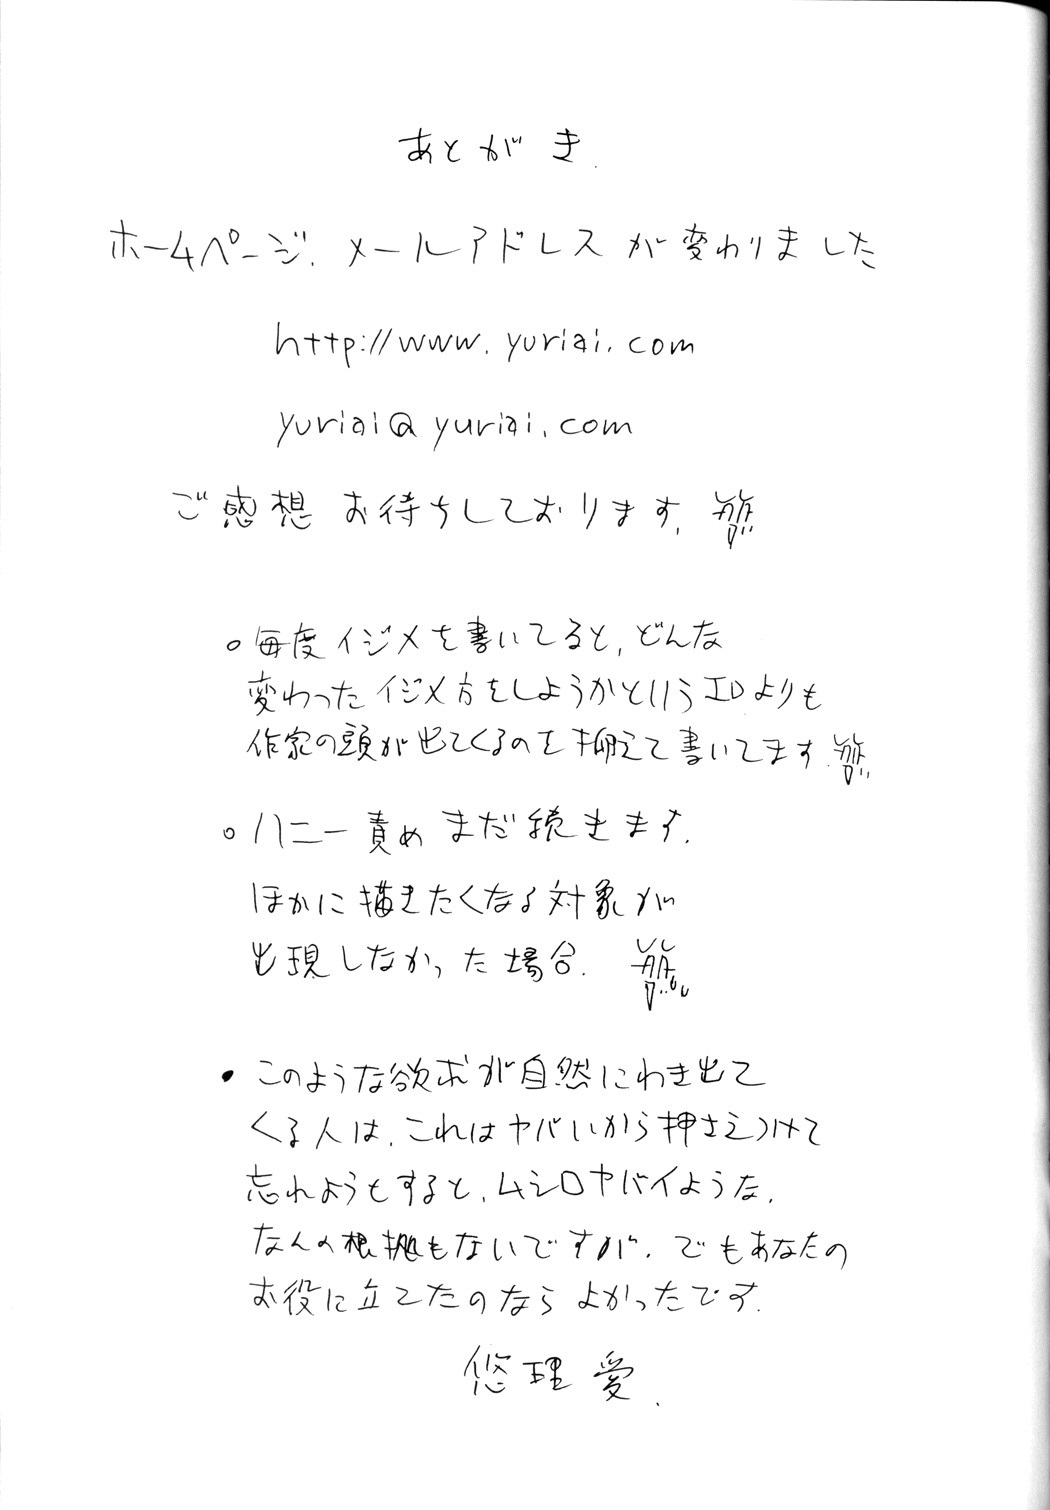 あとがき.
ホームページ.メールアドレスが変わりました
http://www.yuriai.com
yuriai@yuriai.com
ご感想お待ちしております.
○毎度イジメを書いてると,どんな
変わったイジメ方をしようかというエロよりも
作家の頭が出てくるのを抑えて書いてます.
○ハニー責めまだ続きます.
ほかに描きたくなる対象が
出現しなかった場合.
・このような欲求が自然にわき出て
くる人は.これはヤバいから押さえつけて
忘れようとすると.ムシロヤバイような.
なんの根拠もないですが.でもあなたの
お役に立てたのならよかったです.
悠理愛.